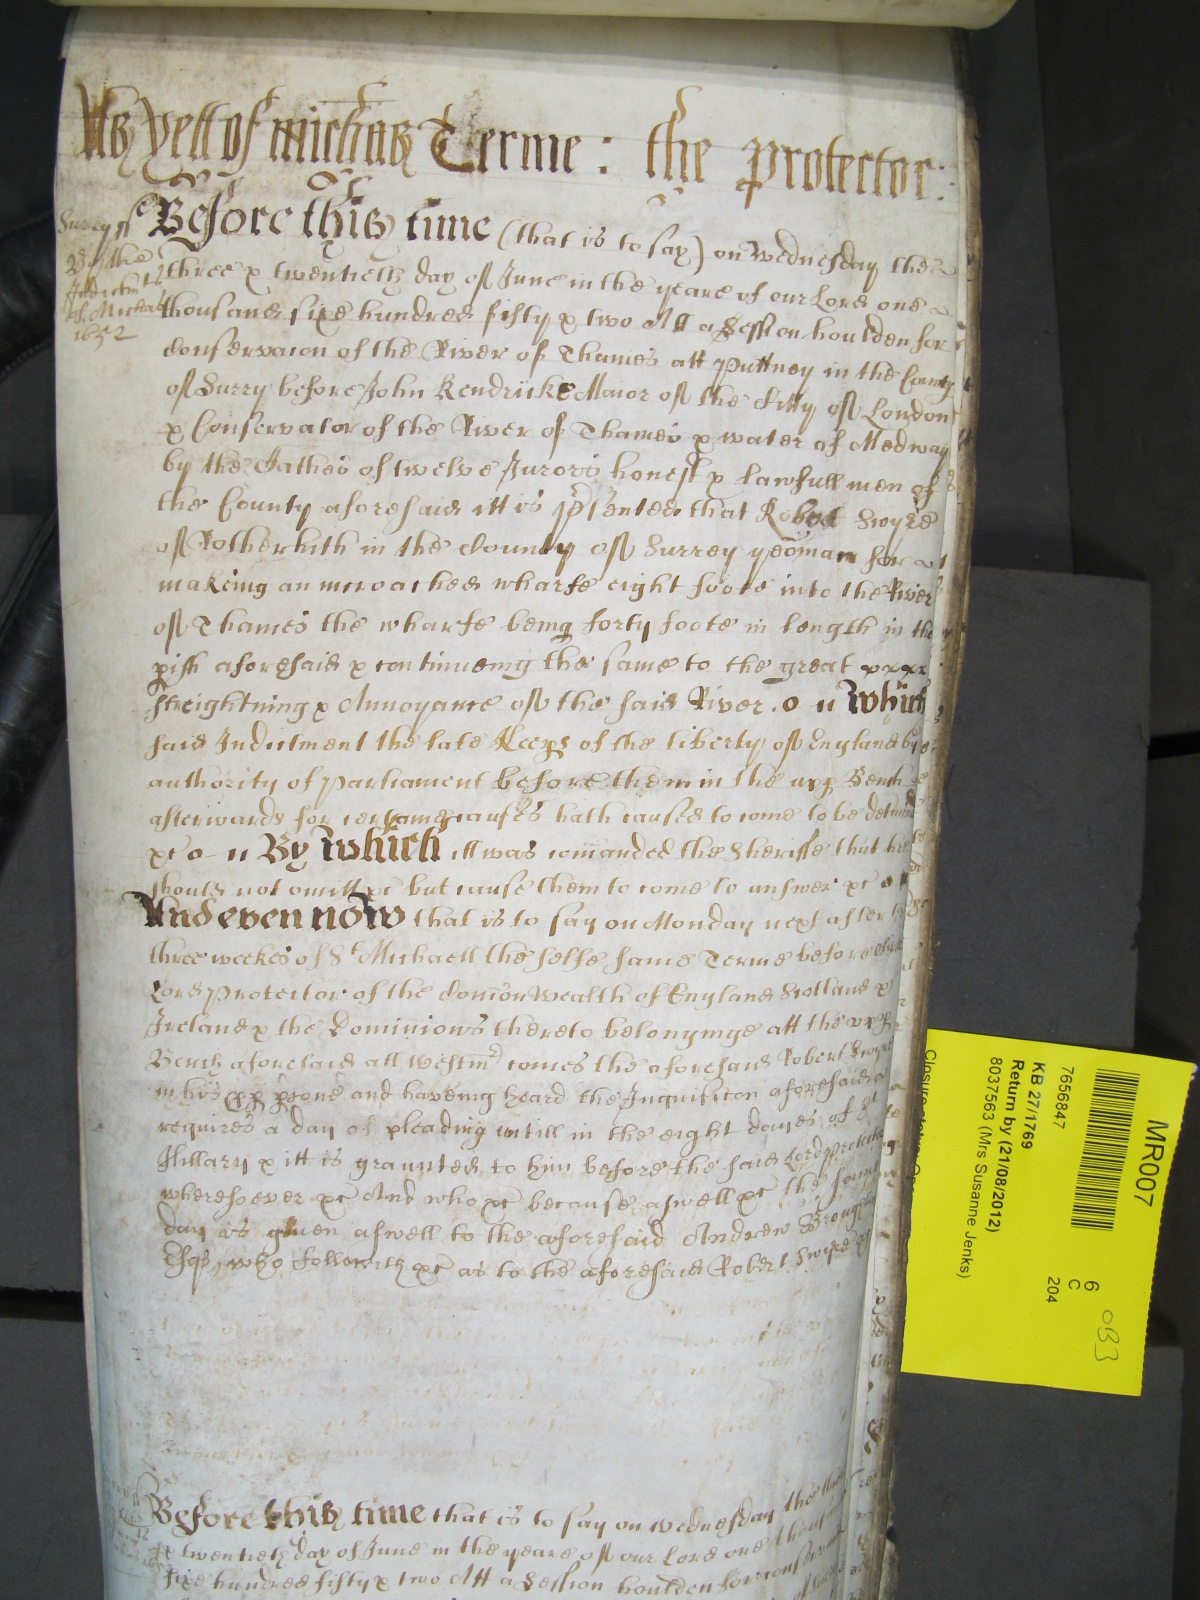 As yett of Michas Terme : the Protector :
Surrey ss Before this time (that is to say) on Wednesday the
three & twentieth day of June in the yeare of our Lord one
Indictmts
of Michas thousand sixe hundred fifty & two Att a Session houlden for
1652
Conservacon of the River of Thames att Puttney in the County
of Surry before John Kendricke Maior of the Citty of London
& Conservator of the River of Thames & water of Medway
by the Oathes of twelve Jurors honest & lawfull men of
the County aforesaid itt is psented that Robert Swyre
of Rotherhith in the County of Surrey yeoman for
making an incroached wharfe eight foote into the River
of Thames the wharfe being forty foote in length in the
pish aforesaid & continueing the same to the great
streightning & Annoyance of the said River . which
said Indictment the late Keeps of the liberty of England by
authority of Parliament before them in the upp Bench
afterwards for certaine causes hath caused to come to be detmind
&c By which itt was comanded the Sheriffe that he
should not omitt &c but cause them to come to answer &c
And even now that is to say on Monday next after
three weekes of St Michaell the selfe same Terme before
Lord Protector of the Comonwealth of England Scotland &
Ireland & the Dominions thereto belonginge att the upp
Bench aforesaid att Westmr comes the aforesaid Robert Swyre
in his pp psone and haveing heard the Inquisicon aforesaid
requires a day of pleading untill in the eight dayes of St
Hillary & itt is graunted to him before the said Lord Protector
wheresoever &c And who &c because aswell &c the same
day is given aswell to the aforesaid Andrew Broughton
Esqr, who followeth &c as to the aforesaid Robert Swyre &c
Before this time that is to say on Wednesday the
& twentieth day of June in the yeare of our Lord one thousand
sixe hundred fifty & two Att a Session houlden for conservacon
MR007
7656847
KB 27/1769
Return by (21/08/2012)
8037563 (Mrs Susanne Jenks)
6
C
204
OB3